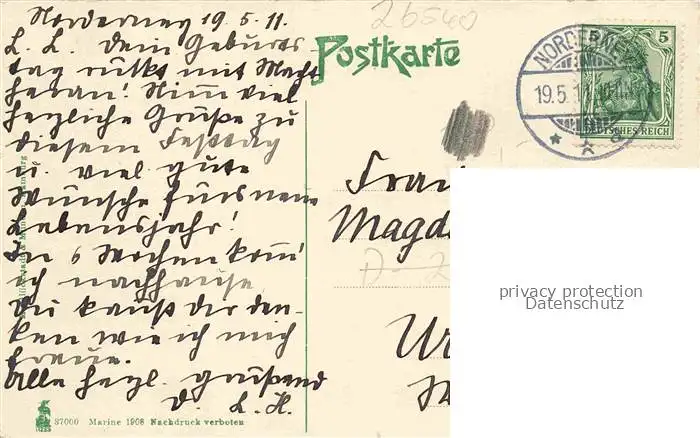 Norderney 19.5.11.
L. L. Dein Geburts
tag rückt mit Macht
heran! Nimm viel
herzliche Grüße zu
diesem Festtag
u. viel gute
Wünsche fürs neue
Lebensjahr!
In 6 Wochen komm'
ich nachhause
Du kannst dir den-
ken wie ich mich
freue.
Alle herzl. grüßend
D. L. H.
26540
Postkarte
NORDERNEY
19.5.11.
5 5
DEUTSCHES REICH
Frau
Magd
privacy protection
Datenschutz
37000 Marine 1908 Nachdruck verboten